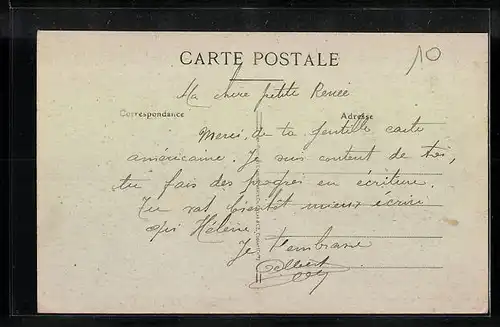 CARTE POSTALE
10
Ma chère petite Renée
Correspondance
Adresse
Merci de ta gentille carte
américaine. Je suis content de toi,
tu fais des progrès en écriture.
Tu vas bientôt mieux écrire
qui Hélène.
Je t'embrasse